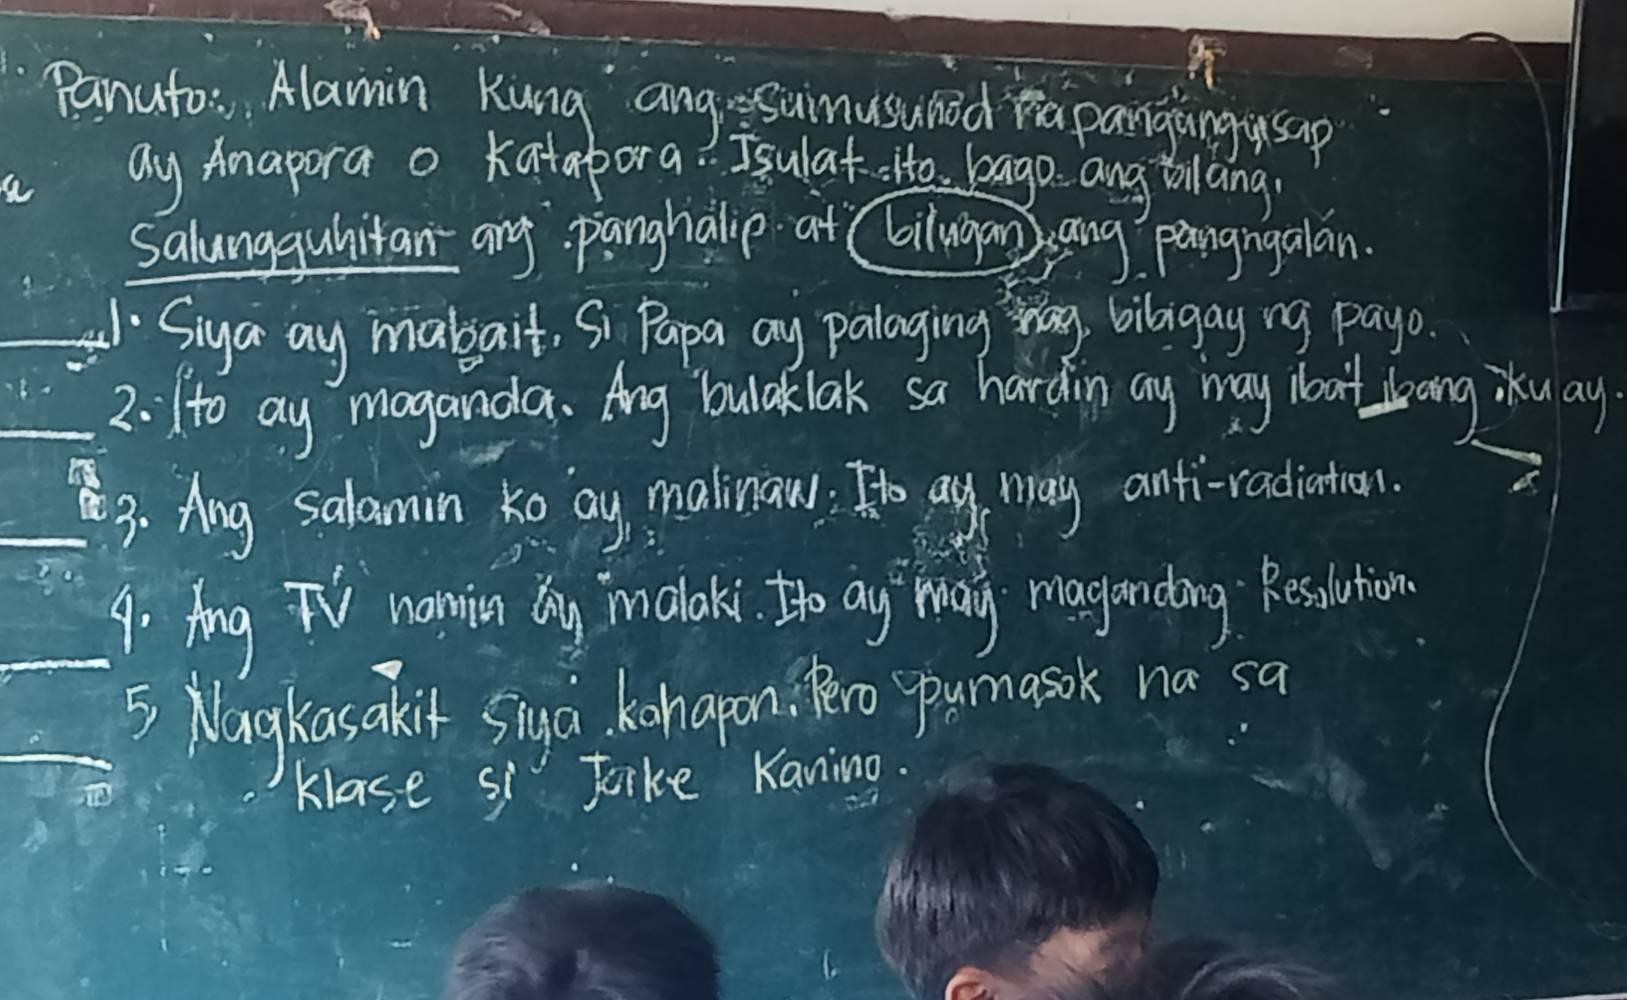 Panuto: Alamin kung ang sumusunod na pangungusap
ay Anapora o katapora. Isulat ito bago ang bilang.
Salungguhitan ang panghalip at bilugan ang pangngalan.
1. Siya ay mabait. Si Papa ay palaging nag bibigay ng payo.
2. Ito ay maganda. Ang bulaklak sa hardin ay may ibat ibang kulay.
3. Ang salamin ko ay malinaw. Ito ay may anti-radiation.
4. Ang TV namin ay malaki. Ito ay may magandang Resolution.
5, Nagkasakit siya kahapon. Pero pumasok na sa
klase si Jake Kanina.